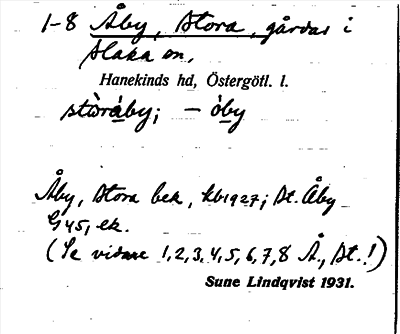 1-8 Åby, Stora, gårdar i
Slaka sn,
Hanekinds hd, Östergötl. l.
stòráby; – óby
Åby, Stora bek, kb1927; St. Åby
G45, ek.
(Se vidare 1,2,3,4,5,6,7,8 Å, St.!)
Sune Lindqvist 1931.